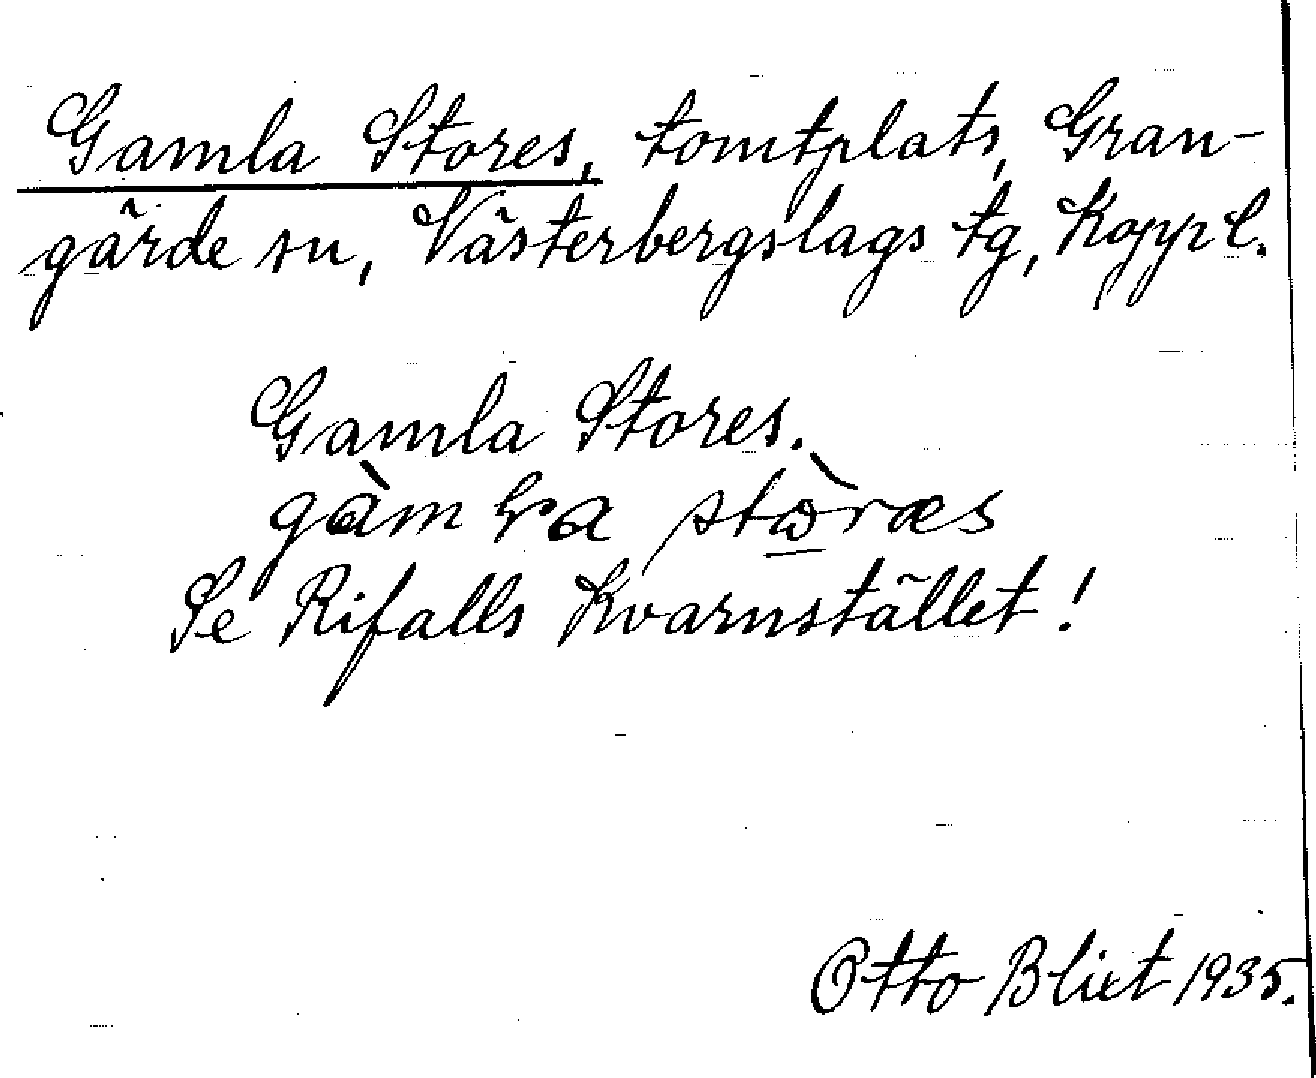 Gamla Stores, tomtplats, Gran-
gärde sn, Västerbergslags tg, Koppl.
Gamla Stores.
Se Rifalls Kvarnstället!
Otto Blixt 1935.